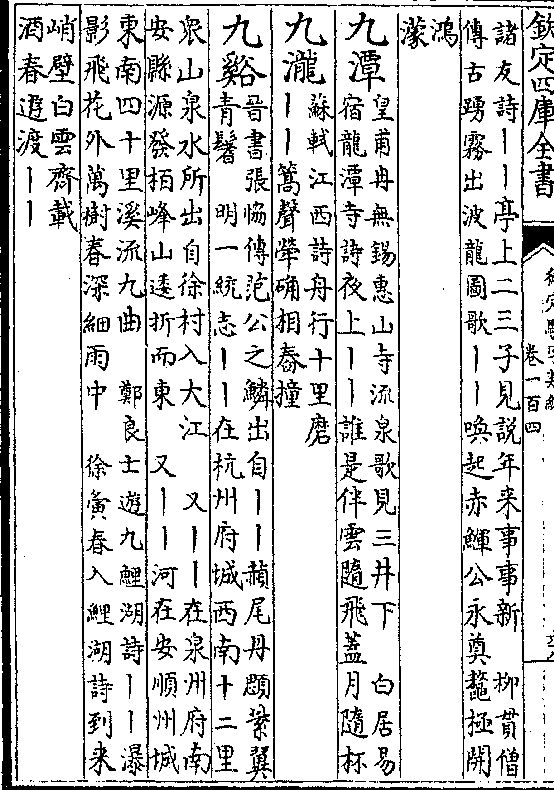 欽定四庫全書
卷一百四
諸友詩——亭上二三子見說年来事事新 柳貫僧
傳古踴霧出波龍圖歌——喚起赤鯶公永奠鼇極開
鴻
濛
九潭 皇甫冉無錫惠山寺流泉歌見三井下 白居易
宿龍潭寺詩夜上——誰是伴雲隨飛蓋月隨杯
九瀧 蘇軾江西詩舟行十里磨
——篙聲犖确相舂撞
九谿 晉書張協傳范公之鱗出自——赬尾丹顋紫翼
青鬐 明一統志——在杭州府城西南十二里
衆山泉水所出自徐村入大江 又——在泉州府南
安縣源發栢峰山逶折而東 又——河在安順州城
東南四十里溪流九曲 鄭良士遊九鯉湖詩——瀑
影飛花外萬樹春深細雨中 徐寅春入鯉湖詩到来
峭壁白雲齊載
酒春遊渡——